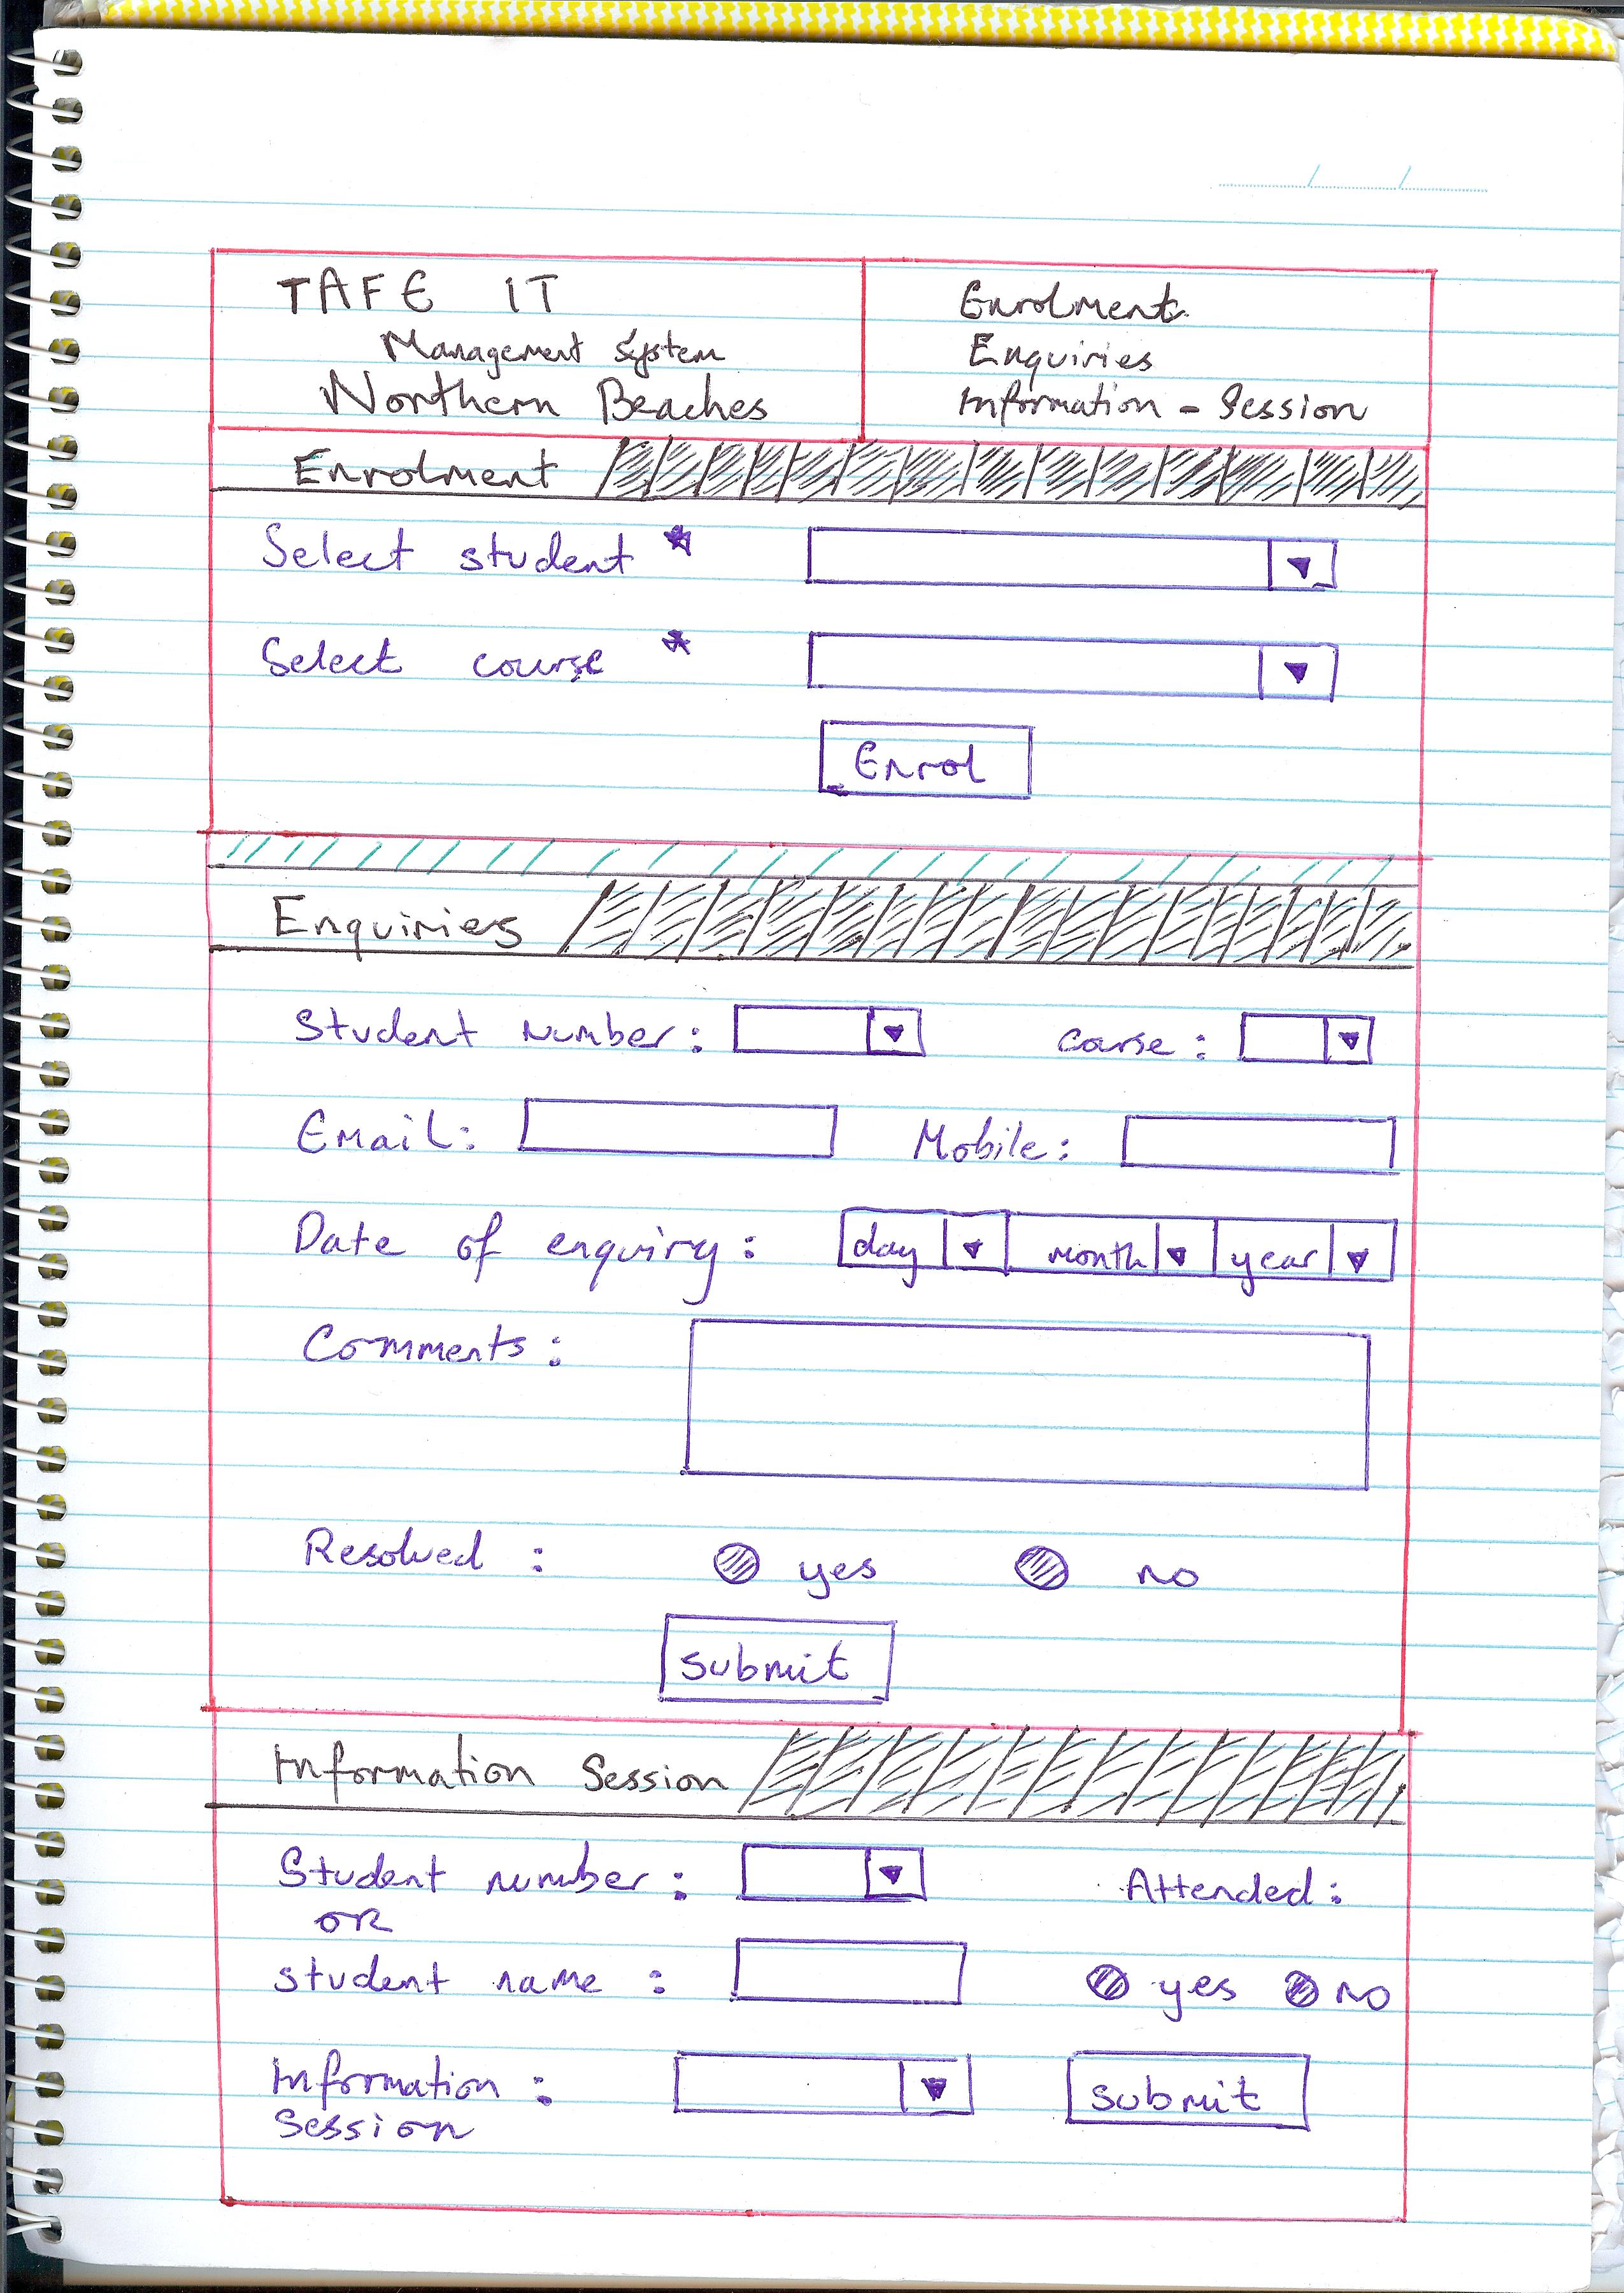 TAFE IT
Management System
Northern Beaches
Enrolment
Enquiries
Information - Session
Enrolment
Select student *
Select course *
Enrol
Enquiries
Student Number : course :
Email : Mobile :
Date of enquiry : day month year
Comments :
Resolved : yes no
submit
Information Session
Student number : Attended :
OR
student name : yes no
Information : submit
Session